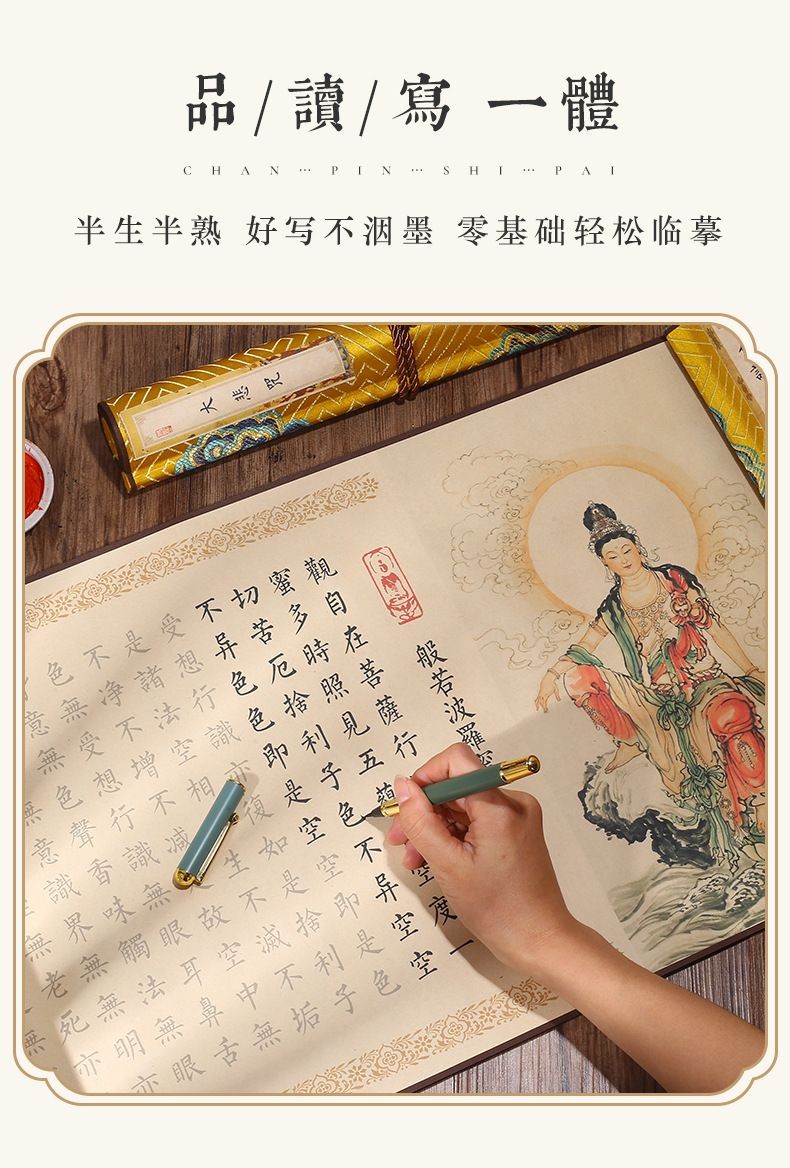 品/讀/寫 一體
CHAN···PIN···SHI···PAI
半生半熟 好写不洇墨 零基础轻松临摹
大悲咒
般若波羅
觀自在菩薩行
蜜多時照見五蘊空度一
切苦厄捨利子色不异空空
不异色色即是空空即是色
受想行識亦復如是捨利子
是諸法空相生不滅不垢
不净不增不減故空中無
色無受想行識無眼耳鼻舌
意無色聲香味觸法無眼
無意識界無無明亦
無老死亦